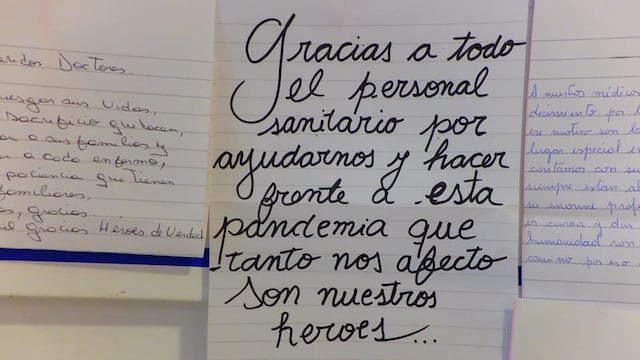 Doctores.
sus vidas,
sacrificio que hacen,
a sus familias y
a cada enfermo,
paciencia que tienen
familiares.
gracias
gracias Heroes de Verdad
Gracias a todo
el personal
sanitario por
ayudarnos y hacer
frente a esta
pandemia que
tanto nos afecto
Son nuestros
heroes...
A nuestros médicos
por
ese motivo son
lugar especial en
contamos con
siempre están
su enorme
es curar y dar
humanidad son
por eso